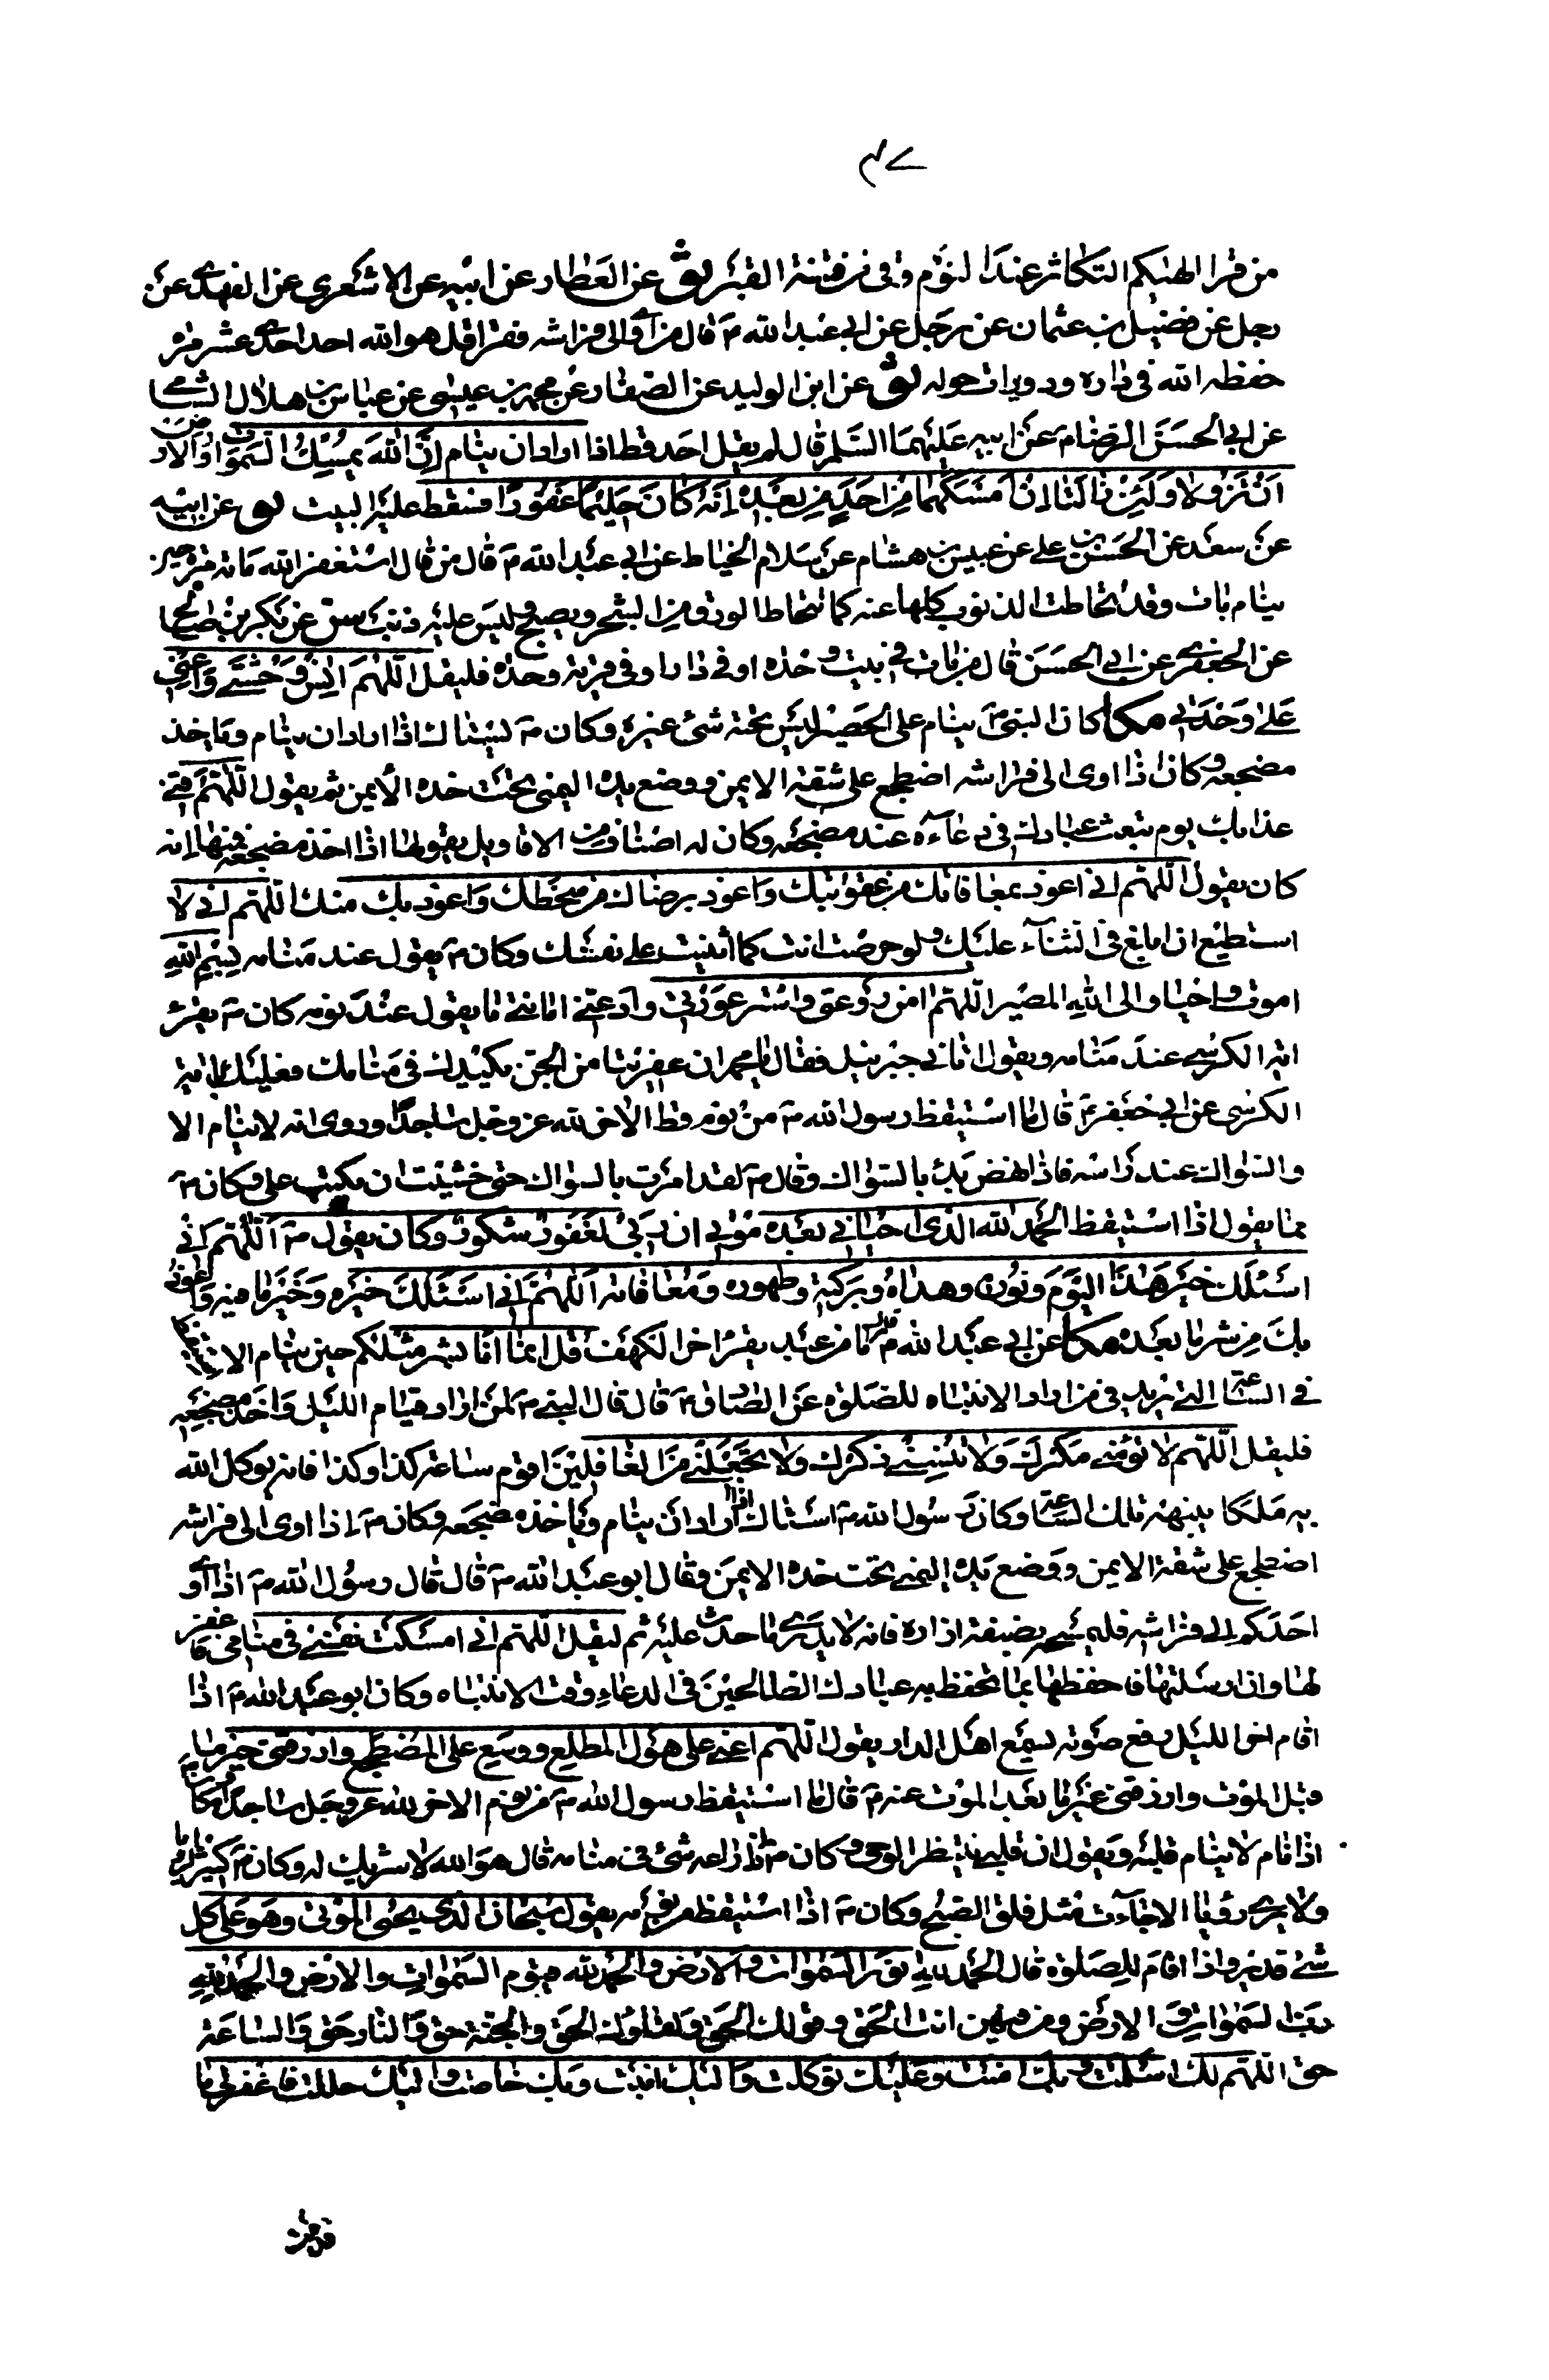 من قرا الهیکم التکاثر عند النوم وقی فتنة القبر لق عن العطار عن ابیه عن الاشعری عن النهدی عن
رجل عن فضیل بن عثمان عن رجل عن ابی عبد الله ؑ قال من اوی الی فراشه فقرا قل هو الله احد احدی عشر مرة
حفظه الله فی داره ودویرات حوله لق عن ابن الولید عن الصفار عن محمد بن عیسی عن عباس بن هلال الشامی
عن ابی الحسن الرضا ؑ عن ابیه علیهما السلم قال لم یقل احد قط اذا اراد ان ینام اِنَّ اللهَ یُمْسِکُ السَّموات والارض
اَنْ تَزُولا وَلَئِنْ زالَتا اِنْ اَمْسَکَهُما مِنْ اَحَدٍ مِنْ بَعْدِهِ اِنَّهُ کانَ حَلیماً غَفُوراً فسقط علیه البیت لی عن ابیه
عن سعد عن الحسن بن علی عن عبیس بن هشام عن سلام الخیاط عن ابی عبد الله ؑ قال من قال استغفر الله مائة مرة حین
ینام بات وقد تحاطت الذنوب کلها عنه کما تتحاط الورق من الشجر ویصبح ولیس علیه ذنب سن عن بکر بن صالح
عن الجعفری عن ابی الحسن قال من بات فی بیت وحده او فی دار او فی قریة وحده فلیقل اللهم انس وحشتی واعنی
علی وحدتی مکا کان النبی ؐ ینام علی الحصیر لیس تحته شیء غیره وکان ؐ یستاک اذا اراد ان ینام ویاخذ
مضجعه وکان اذا اوی الی فراشه اضطجع علی شقه الایمن ووضع یده الیمنی تحت خده الایمن ثم یقول اللهم قنی
عذابک یوم تبعث عبادک فی دعاءه عند مضجعه وکان له اصناف من الاقاویل یقولها اذا اخذ مضجعه فمنها انه
کان یقول اللهم انی اعوذ بمعافاتک من عقوبتک واعوذ برضاک من سخطک واعوذ بک منک اللهم انی لا
استطیع ان ابلغ فی الثناء علیک ولو حرصت انت کما اثنیت علی نفسک وکان ؐ یقول عند منامه بسم الله
اموت واحیا والی الله المصیر اللهم امن روعتی واستر عورتی واد عنی امانتی ما یقول عند نومه کان ؐ یقرء
ایة الکرسی عند منامه ویقول اتانی جبرئیل فقال یا محمد ان عفریتا من الجن یکیدک فی منامک فعلیک بایة
الکرسی عن ابی جعفر ؑ قال ما استیقظ رسول الله ؐ من نوم قط الا خر لله عز وجل ساجدا وروی انه لا ینام الا
والسواک عند راسه فاذا نهض بدء بالسواک وقال ؐ لقد امرت بالسواک حتی خشیت ان یکتب علی وکان ؐ
مما یقول اذا استیقظ الحمد لله الذی احیانی بعد موتی ان ربی لغفور شکور وکان یقول ؐ اللهم انی
اسئلک خیر هذا الیوم ونوره وهداه وبرکته وطهوره ومعافاته اللهم انی اسئلک خیره وخیر ما فیه واعوذ
بک من شره وشر ما بعده مکا عن ابی عبد الله ؑ ما من عبد یقرء اخر الکهف قل انما انا بشر مثلکم حین ینام الا استیقظ
فی الساعة التی یرید فی من اراد الانتباه للصلوة عن الصادق ؑ قال قال النبی ؐ لمن اراد قیام اللیل واخذ مضجعه
فلیقل اللهم لا تؤمنی مکرک ولا تنسنی ذکرک ولا تجعلنی من الغافلین اقوم ساعة کذا وکذا فانه یوکل الله
به ملکا ینبهه تلک الساعة وکان رسول الله ؐ استاک اذا اراد ان ینام ویاخذ مضجعه وکان ؐ اذا اوی الی فراشه
اضطجع علی شقه الایمن ووضع یده الیمنی تحت خده الایمن وقال ابو عبد الله ؑ قال قال رسول الله ؐ اذا اوی
احدکم الی فراشه فلیمسحه بصنفة ازاره فانه لا یدری ما حدث علیه ثم لیقل اللهم انی امسکت نفسی فی منامی فاغفر
لها وان ارسلتها فاحفظها بما تحفظ به عبادک الصالحین فی الدعاء وقت الانتباه وکان ابو عبد الله ؑ اذا
اقام اخر اللیل رفع صوته یسمع اهل الدار یقول اللهم اعنی علی هول المطلع ووسع علی المضجع وارزقنی خیر ما
قبل الموت وارزقنی خیر ما بعد الموت عنه ؑ قال ما استیقظ رسول الله ؐ من نوم الا خر لله عز وجل ساجدا وکان
اذا نام لا ینام قلبه ویقول ان قلبی ینتظر الوحی وکان ؐ اذا راعه شیء فی منامه قال هو الله لا شریک له وکان ؐ کثیر الرؤیا
ولا یری رؤیا الا جاءت مثل فلق الصبح وکان ؐ اذا استیقظ من نومه یقول سبحان الذی یحیی الموتی وهو علی کل
شیء قدیر واذا اقام للصلوة قال الحمد لله نور السموات والارض والحمد لله قیوم السموات والارض والحمد لله
رب السموات والارض ومن فیهن انت الحق وقولک الحق ولقاؤک الحق والجنة حق والنار حق والساعة
حق اللهم لک اسلمت وبک امنت وعلیک توکلت والیک انبت وبک خاصمت والیک حاکمت فاغفر لی ما
قدمت